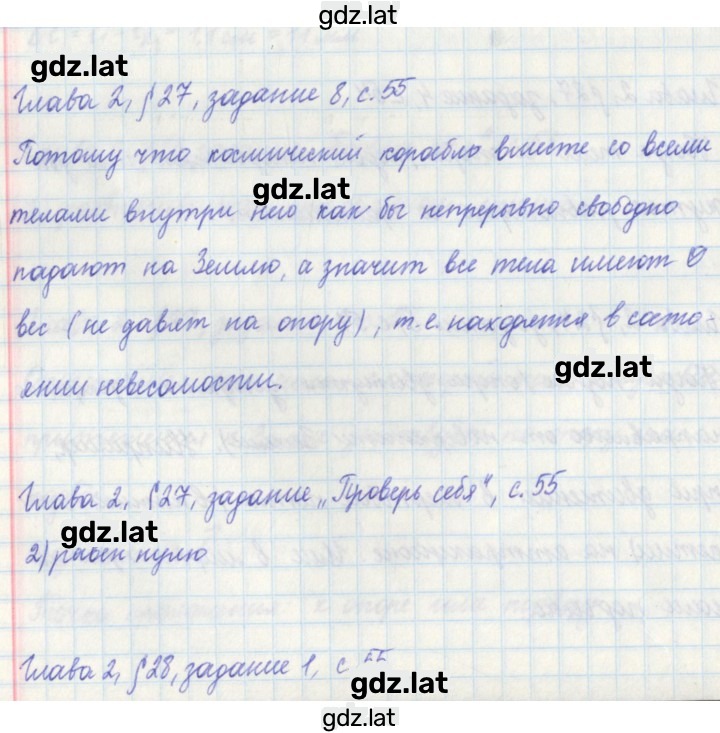 gdz.lat
gdz.lat
Глава 2, §27, задание 8, с.55
Потому что космический корабль вместе со всеми
gdz.lat
телами внутри него как бы непрерывно свободно
падают на Землю, а значит все тела имеют 0
вес (не давят на опору), т.е. находятся в состо-
gdz.lat
янии невесомости.
Глава 2, §27, задание „Проверь себя", с.55
gdz.lat
2) равен нулю
Глава 2, §28, задание 1, с 55
gdz.lat
gdz.lat